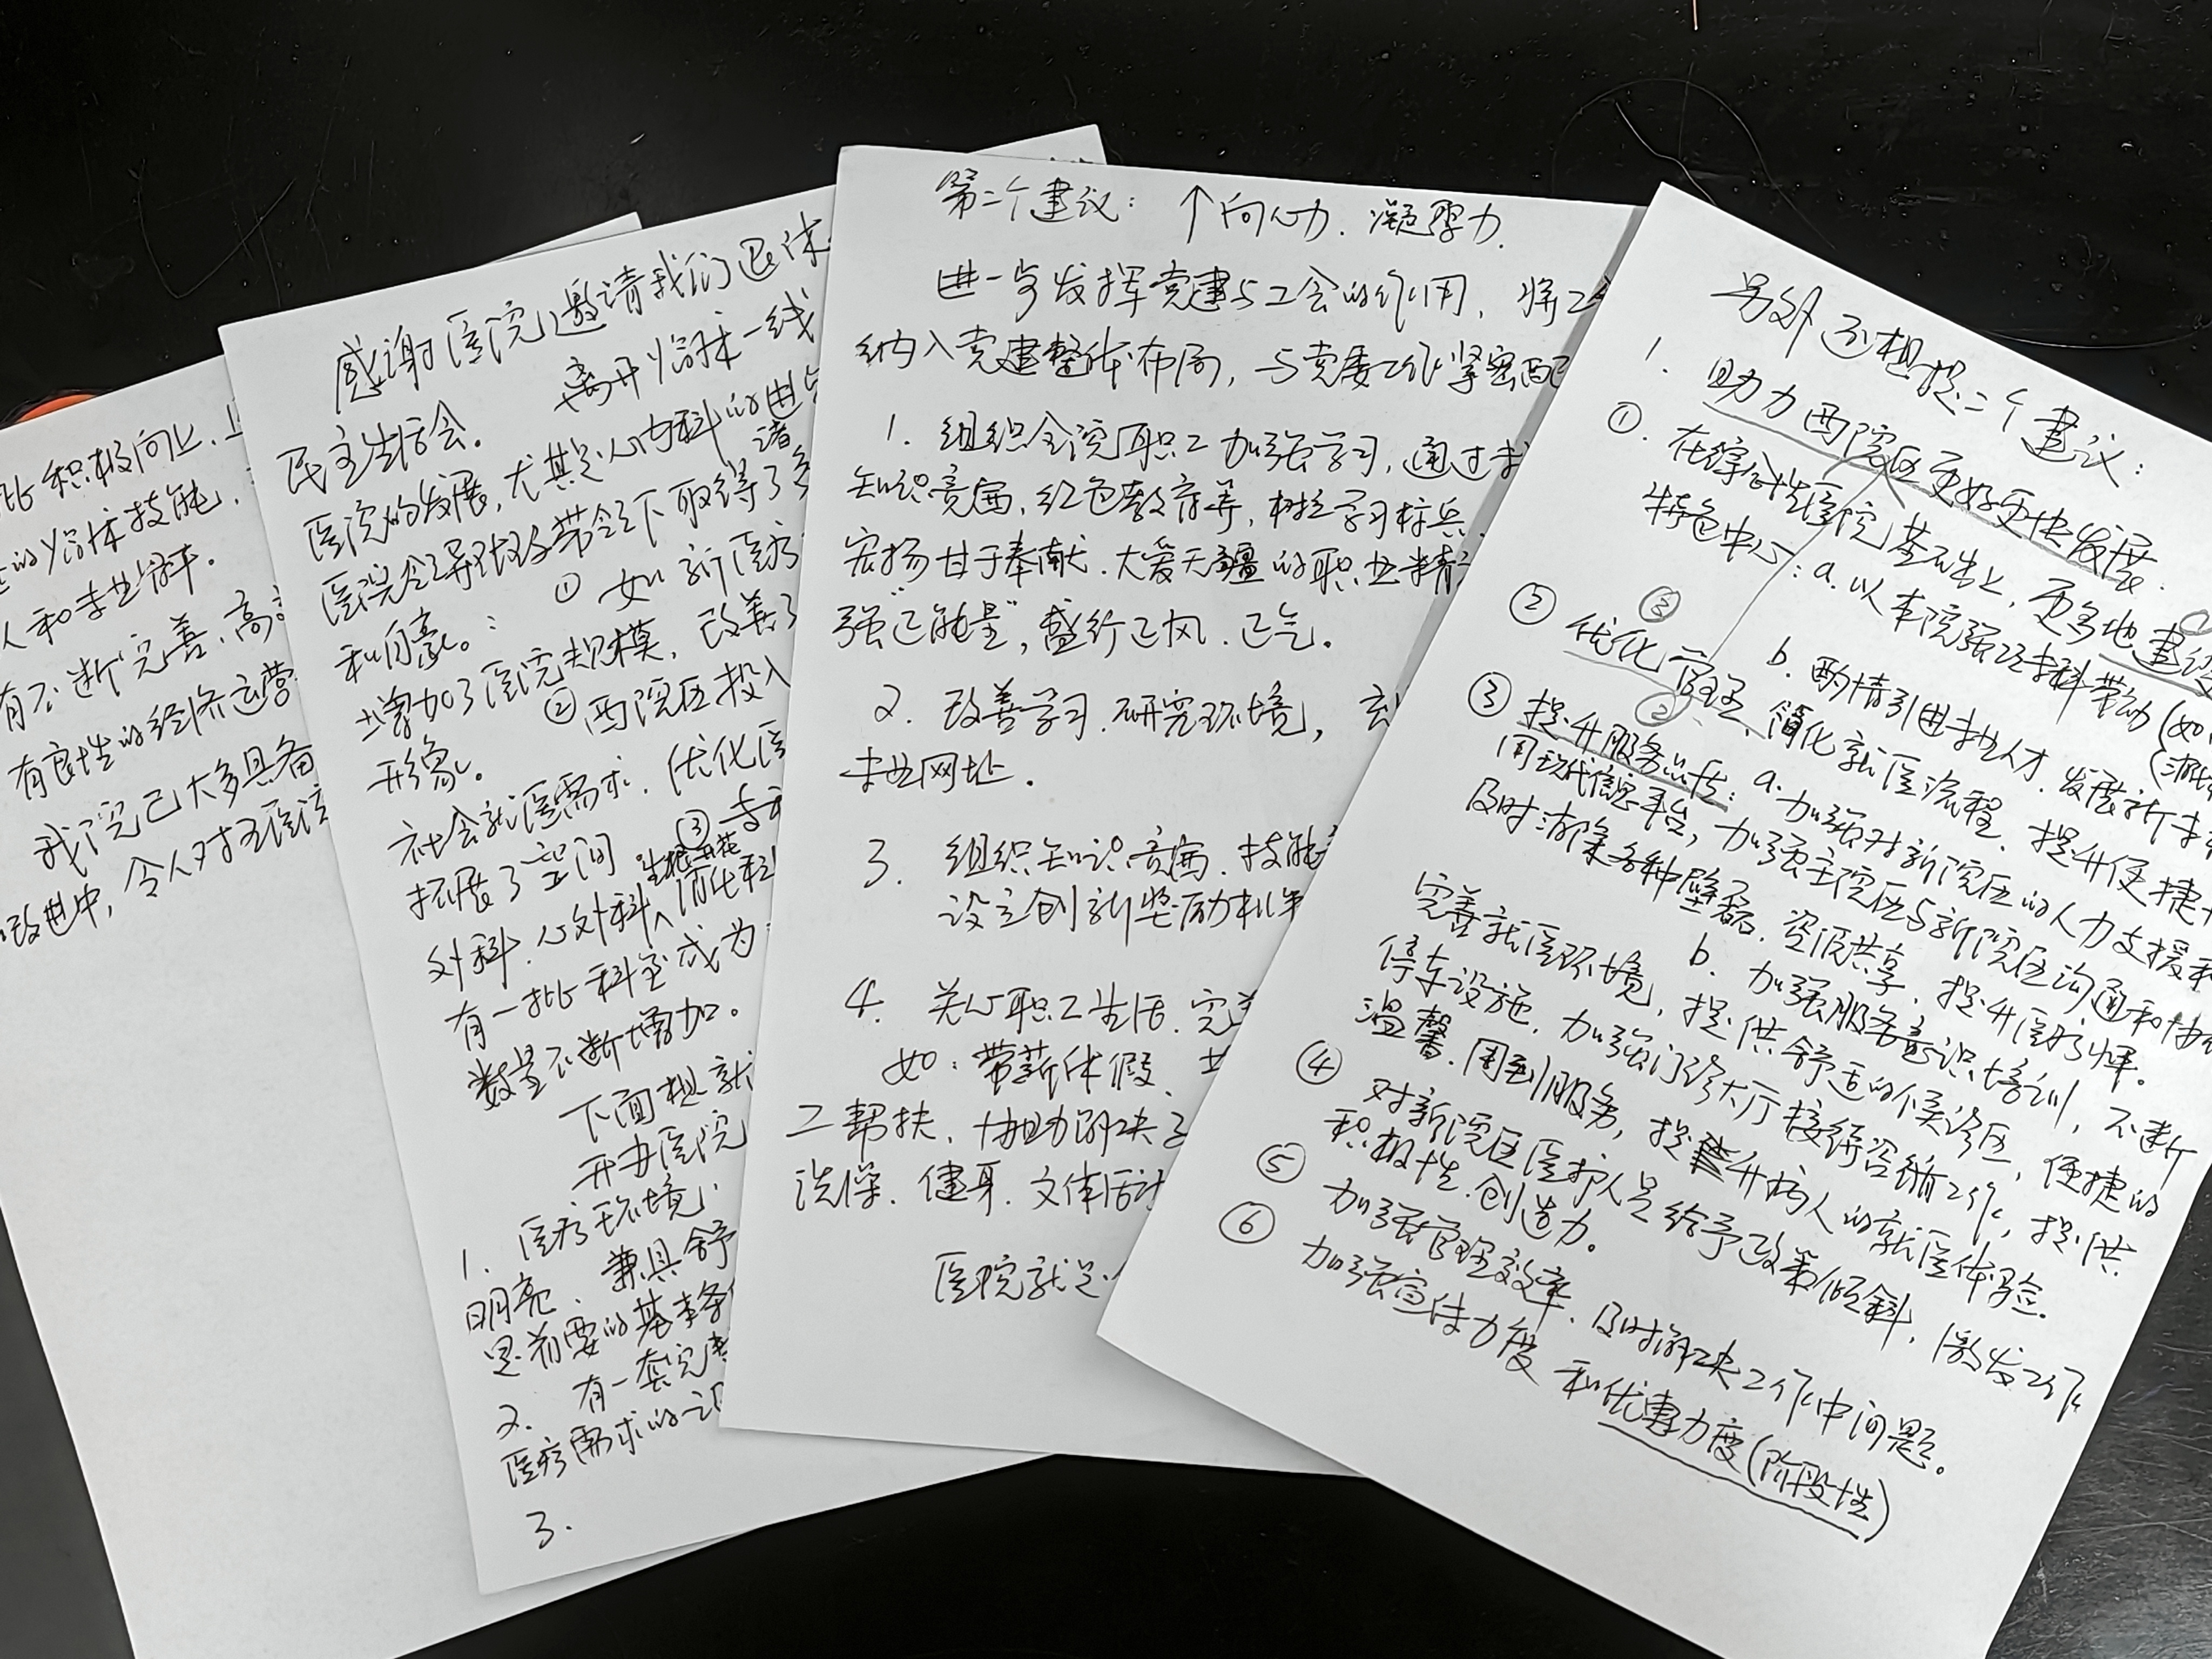 此积极向上、
的临床技能，
人和专业水平。
有不断完善、高
有良性的经济运营
我院已大多具备
改进中，令人对我医院
感谢医院邀请我们退休
民主生活会。 离开临床一线
医院的发展，尤其是心内科的进
医院领导班子带领下取得了诸多
和自豪。： ① 如新医疗
增加了医院规模，改善了
形象。 ②西院区投入
社会就医需求，优化医
拓展了空间 ③
外科、心外科、生殖 消化科
有一批科室成为
数量不断增加。
下面想就
开办医院
1. 医疗环境：
明亮、兼具舒
是首要的基本条
2. 有一套完整
医疗需求的
3.
第二个建议：↑向心力、凝聚力.
进一步发挥党建与工会的作用，将工
纳入党建整体布局，与党委工作紧密配
1. 组织全院职工加强学习，通过
知识竞赛，红色教育等，树立学习标兵、
宏扬甘于奉献、大爱无疆的职业精
强“正能量”，盛行正风、正气。
2. 改善学习、研究环境，
专业网址。
3. 组织知识竞赛、技能
设立创新奖励机
4. 关心职工生活、完善
如：带薪休假、
工帮扶、协助解决
洗澡、健身、文体活
医院就是
另外还想提二个建议：
1. 助力西院区更好更快发展.
①. 在综合性医院基础上，更多地建设
特色中心：a. 以本院强项专科带动(如
b. 酌情引进专业人才、发展新专
② ③ 优化管理、简化就医流程、提升便捷
③ ② 提升服务品质：a. 加强对新院区的人力支援和
用现代信息平台，加强主院区与新院区沟通和协
及时消除各种壁垒、资源共享、提升医疗水平。
b. 加强服务意识培训，不断
完善就医环境，提供舒适的候诊区，便捷的
停车设施，加强门诊大厅接待咨询工作，提供
温馨、周到服务，提升病人的就医体验.
④ 对新院区医护人员给予政策倾斜，激发工作
积极性、创造力。
⑤ 加强管理效率、及时解决工作中问题。
⑥ 加强宣传力度 和优惠力度(阶段性)